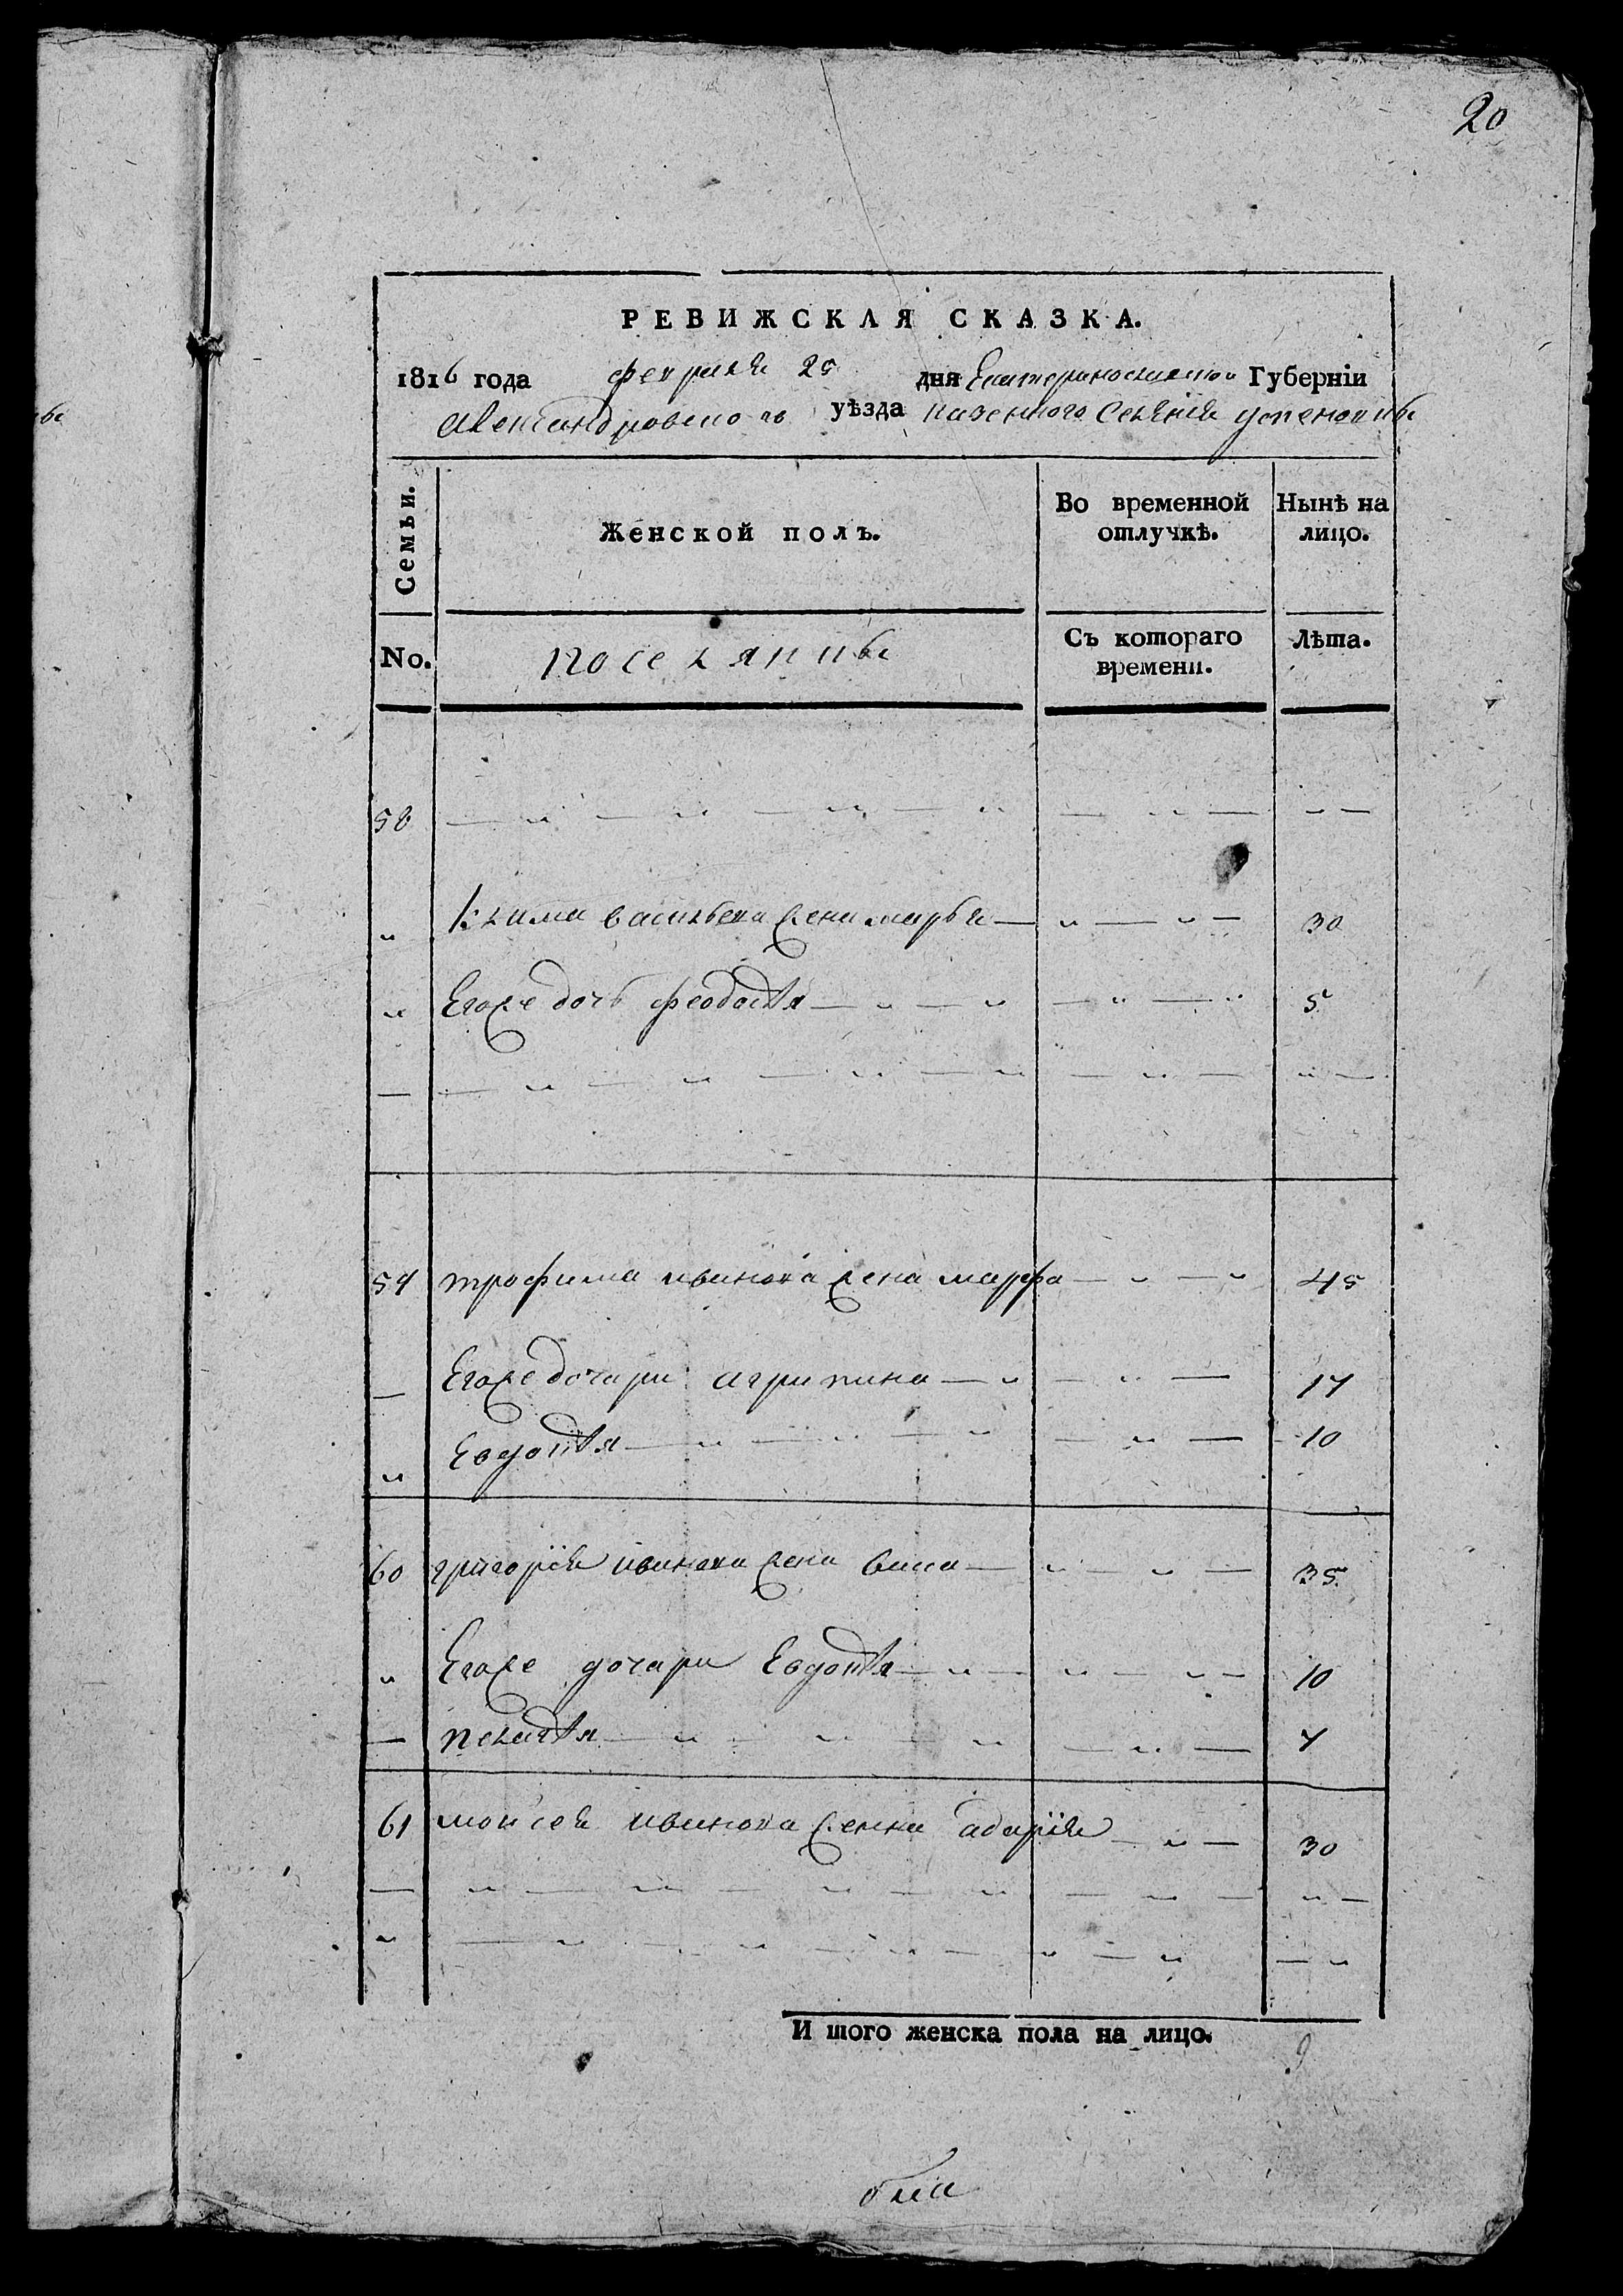 20
РЕВИЖСКАЯ СКАЗКА.
1816 года февраля 25 дня Екатеринославской Губерніи
Александровского уѣзда казенного селения успеновки
Семьи.
Женской полъ.
Во временной отлучкѣ.
Нынѣ на лицо.
No.
поселянии
Съ котораго времени.
Лѣта.
58
Клима васильева жена марья 30
Егоже дочь феодосія 5
59 трофима иванова жена марфа 45
Егоже дочери агрипина 17
Евдокія 10
60 григорія иванова жена васа 35
Егоже дочери Евдокія 10
пелагія 7
61 моисея иванова жена 30
И того женска пола на лицо. 9